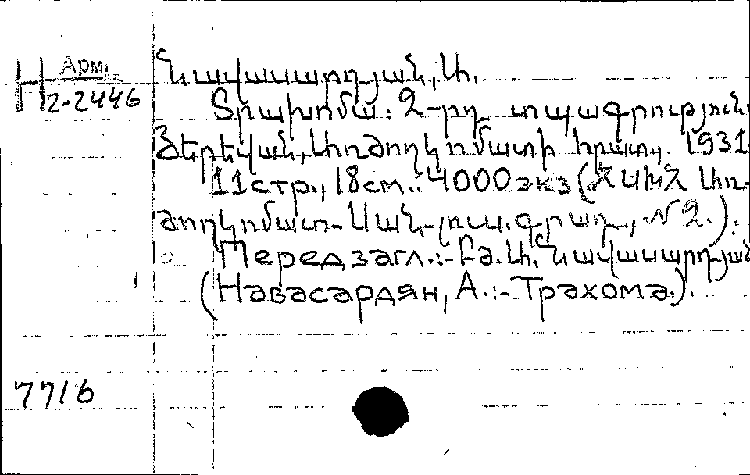 Н Арм.
2-2446
Նավասարդյան, Ա.
Տրախոմա: 2-րդ տպագրություն
Յերեվան, Առժողկոմատի հրատ. 1931
11 стр., 18см.: 4000 экз (ՀՍԽՀ Առ-
ժողկոմատ- Սան.-լուս. գրադ., N 2.).
Перед загл.:- Բժ. Ա. Նավասարդյան
(Навасардян, А.:- Трахома.).
7716